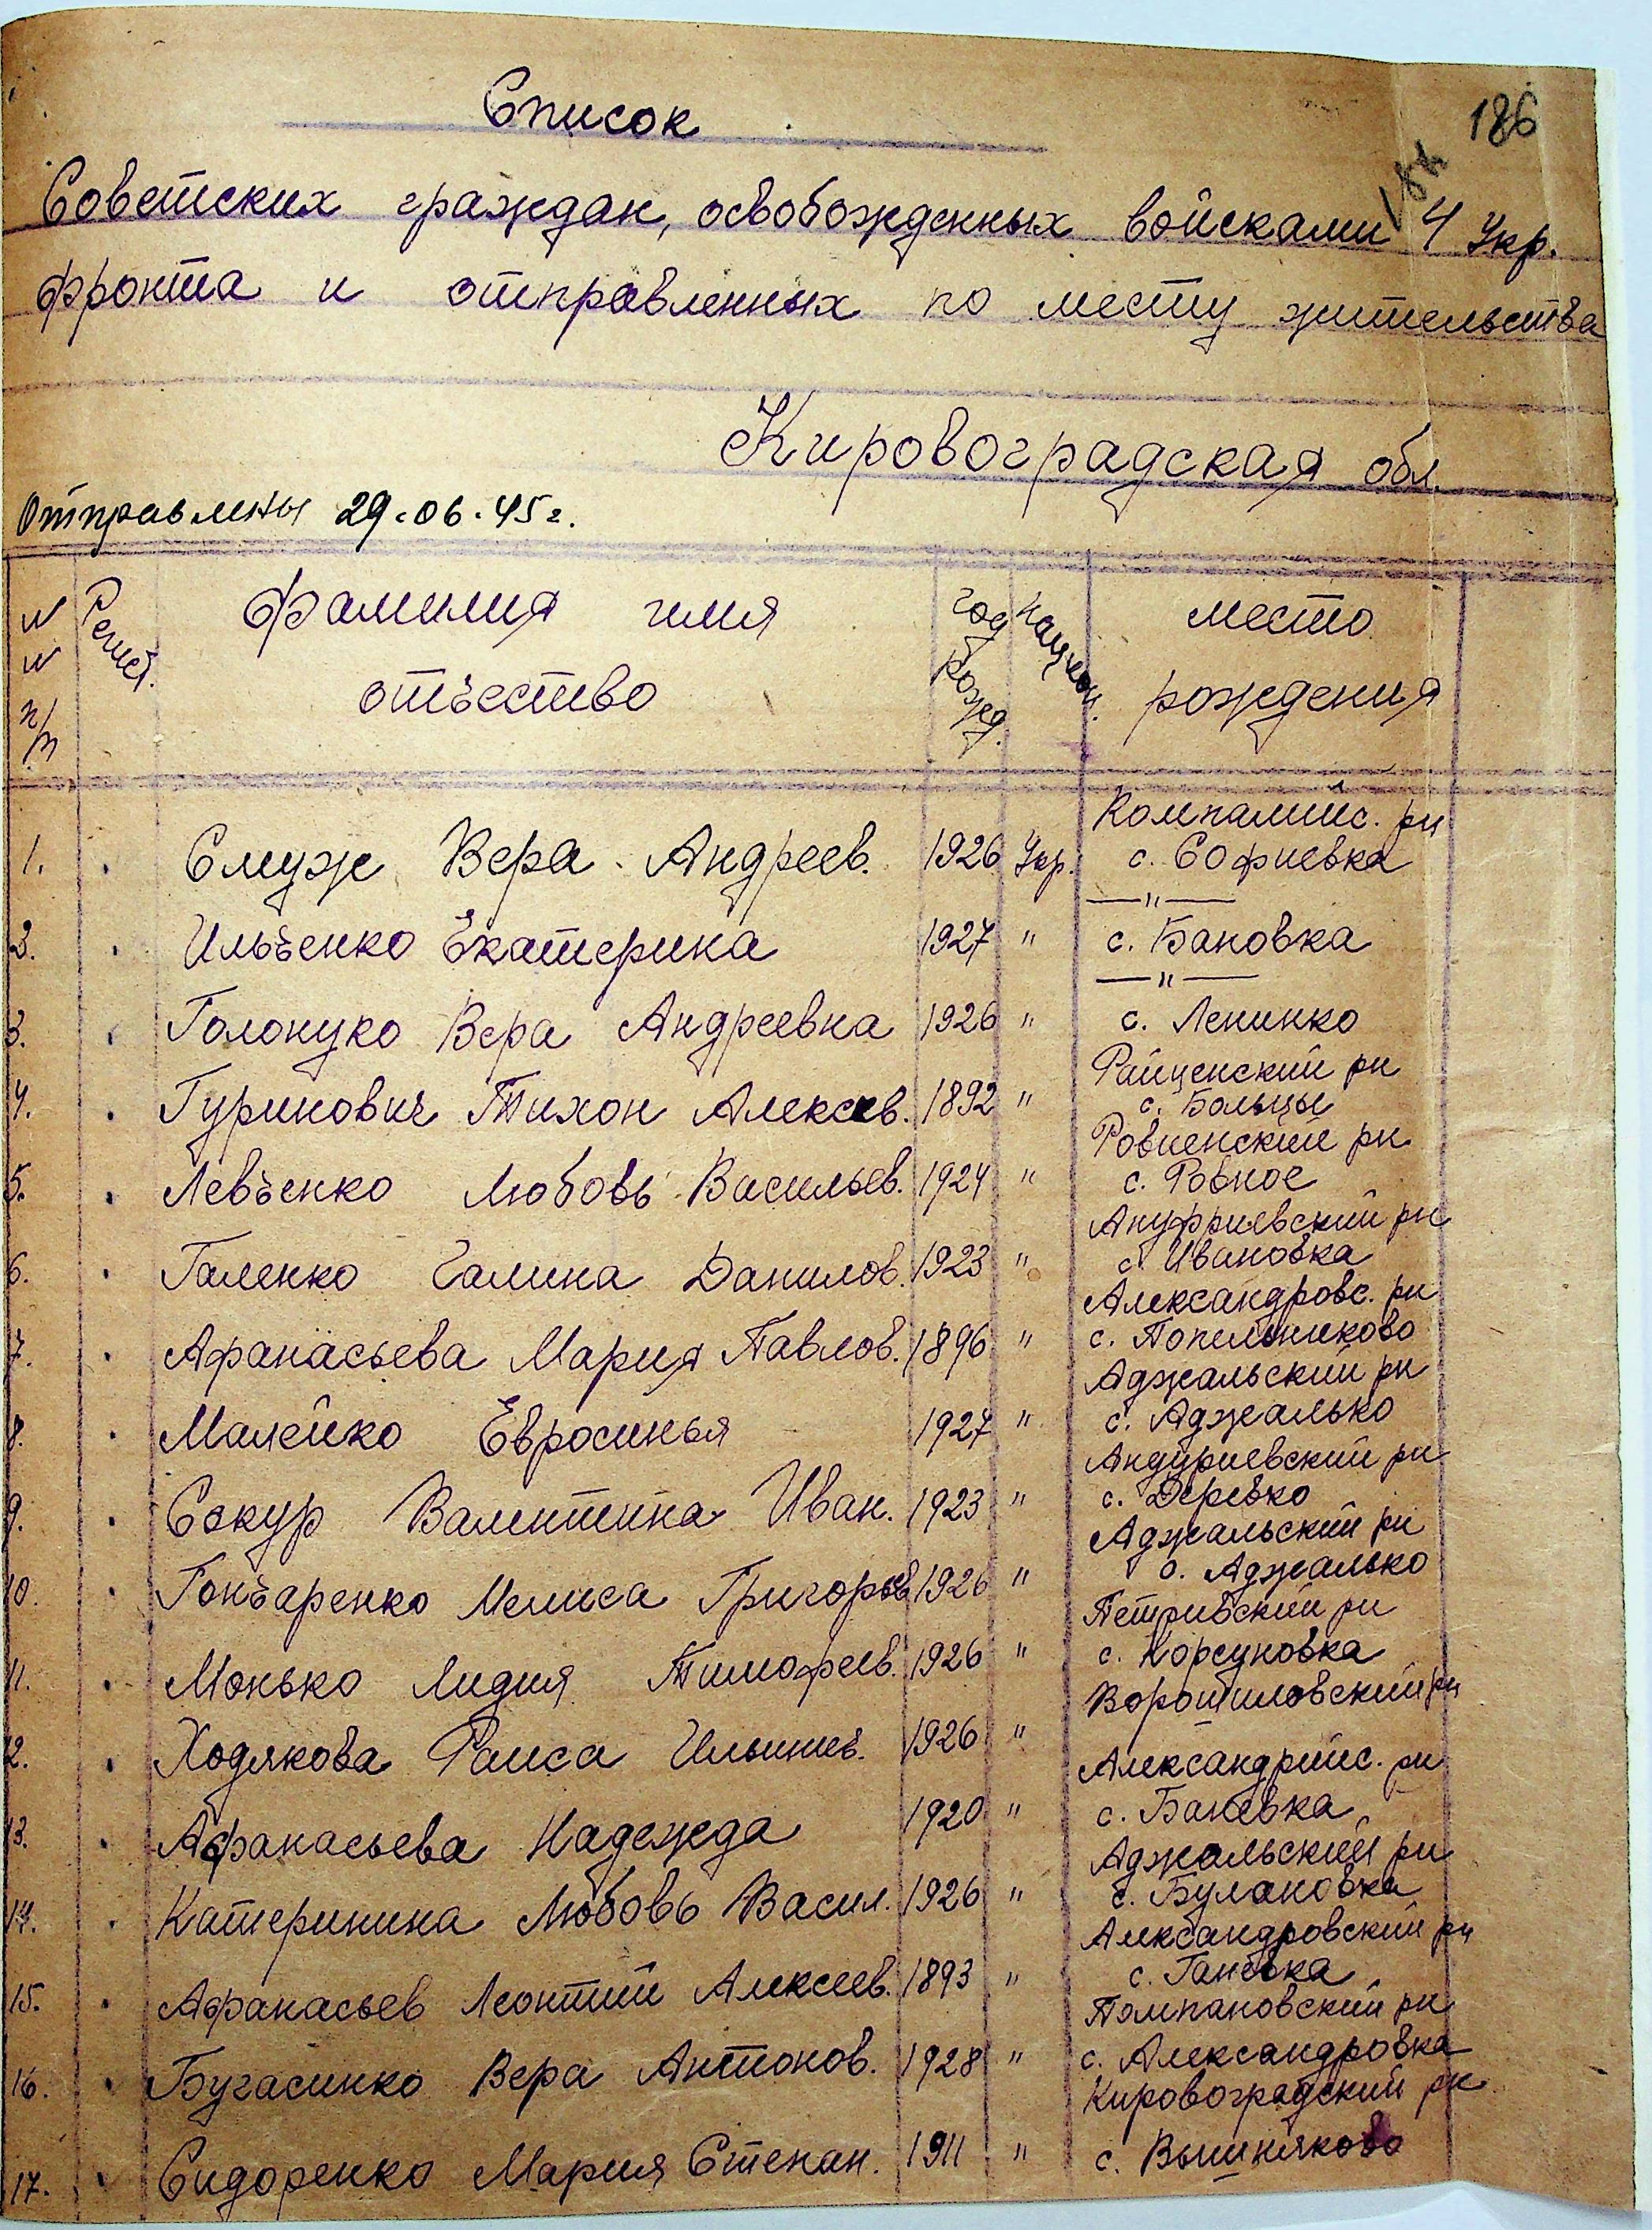 186
184
Список
Советских граждан, освобожденных войсками 4 Укр.
фронта и отправленных по месту жительства
Кировоградская обл.
Отправлены 29.06.45г.
NN п/п Регист. фамилия имя отчество год рожд. национ. место рождения
Компаниис. рн
1. Смуж Вера Андреев. 1926 Укр. с. Софиевка
—"—
2. Ильченко Екатерина 1927 " с. Бановка
—"—
3. Голокуко Вера Андреевна 1926 " с. Ленинко
рн
4. Гуринович Тихон Алексев. 1892 " с. Больцы
Ровненский рн
5. Левченко Любовь Васильев. 1924 " с. Ровное
Ануфриевский рн
6. Галенко Галина Данилов. 1923 " с. Ивановка
Александровс. рн
7. Афанасьева Мария Павлов. 1896 " с. Попельниково
Аджальский рн
8. Малейко Евросинья 1927 " с. Аджалько
рн
9. Сокур Валентина Иван. 1923 " с. Деревко
Аджальский рн
10. Гончаренко Мелиса Григорьев 1926 " с. Аджалько
Петривский рн
11. Монько Лидия Тимофеев. 1926 " с. Корсуновка
Ворошиловский рн
12. Ходякова Раиса Ильинич. 1926 "
Александрийс. рн
13. Афанасьева Надежда 1920 " с. Баневка
Аджальский рн
14. Катеринина Любовь Васил. 1926 " с. Булановка
Александровский рн
15. Афанасьев Леонтий Алексеев. 1893 " с. Ганевка
Помпановский рн
16. Бугасинко Вера Антонов. 1928 " с. Александровка
Кировоградский рн
17. Сидоренко Мария Степан. 1911 " с. Вишняково